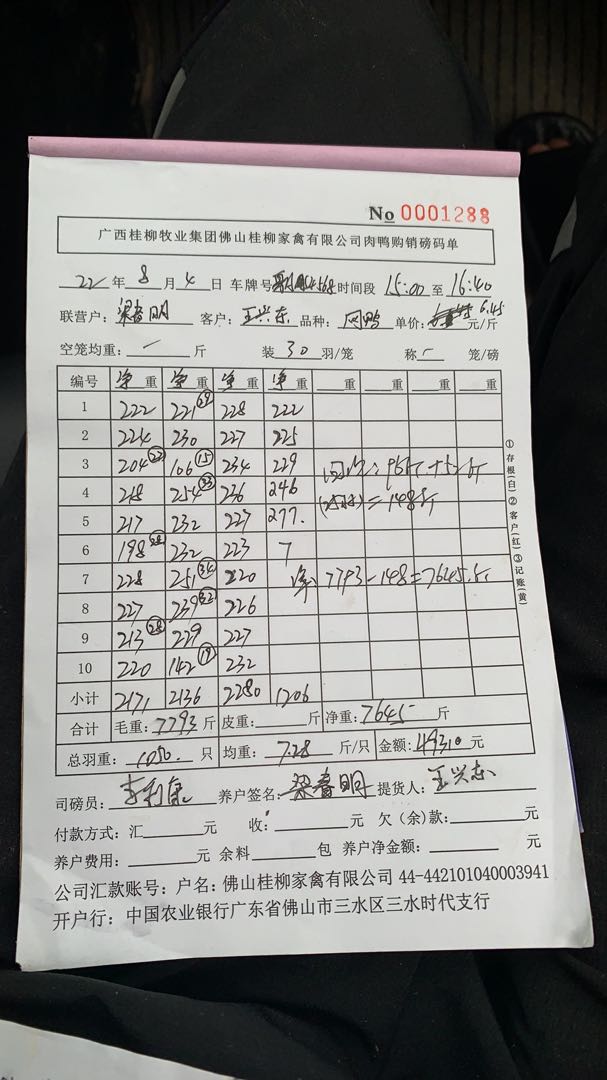 No 0001288
广西桂柳牧业集团佛山桂柳家禽有限公司肉鸭购销磅码单
22 年 8 月 4 日 车牌号 时间段 15:00 至 16:40
联营户: 梁春明 客户: 王兴东 品种: 网鸭 单价: 6.45 元/斤
空笼均重: 一 斤 装 30 羽/笼 称 一 笼/磅
编号 净重 净重 净重 净重 重 重 重 重
1 222 221 (29) 228 222
2 224 230 227 225
3 204 (27) 106 (15) 234 229
4 218 254 (33) 236 246
=148斤
5 217 232 227 277.
6 198 (28) 232 223 7
7 228 251 (34) 220 净: 7793-148=7645斤
8 227 239 (32) 226
9 213 (28) 229 227
10 220 142 (19) 232
小计 2171 2136 2280 1206
合计 毛重: 7793 斤 皮重: 斤 净重: 7645 斤
总羽重: 1050. 只 均重: 7.28 斤/只 金额: 49310 元
司磅员: 李利康 养户签名: 梁春明 提货人: 王兴东
付款方式: 汇 元 收: 元 欠(余)款: 元
养户费用: 元 余料 包 养户净金额: 元
公司汇款账号: 户名: 佛山桂柳家禽有限公司 44-442101040003941
开户行: 中国农业银行广东省佛山市三水区三水时代支行
①存根(白)②客户(红)③记账(黄)